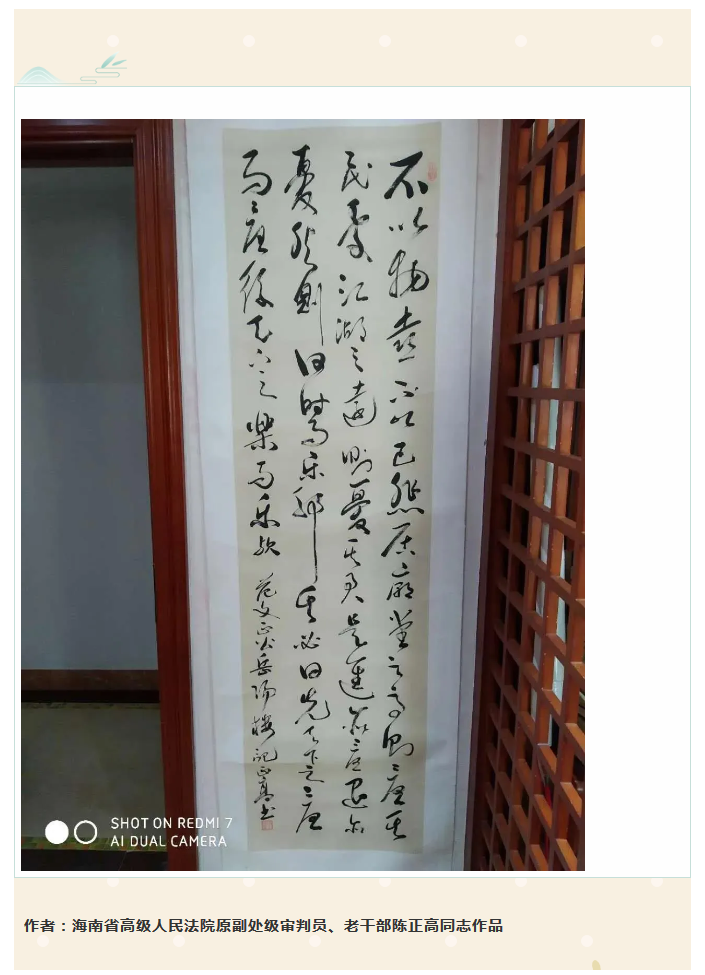 不以物喜不以己悲居廟堂之高則憂其
民處江湖之遠則憂其君是進亦憂退亦
憂然則何時而乐耶其必曰先天下之憂
而憂後天下之樂而乐欤 范文正公岳陽楼記正高书
SHOT ON REDMI 7
AI DUAL CAMERA
作者：海南省高级人民法院原副处级审判员、老干部陈正高同志作品